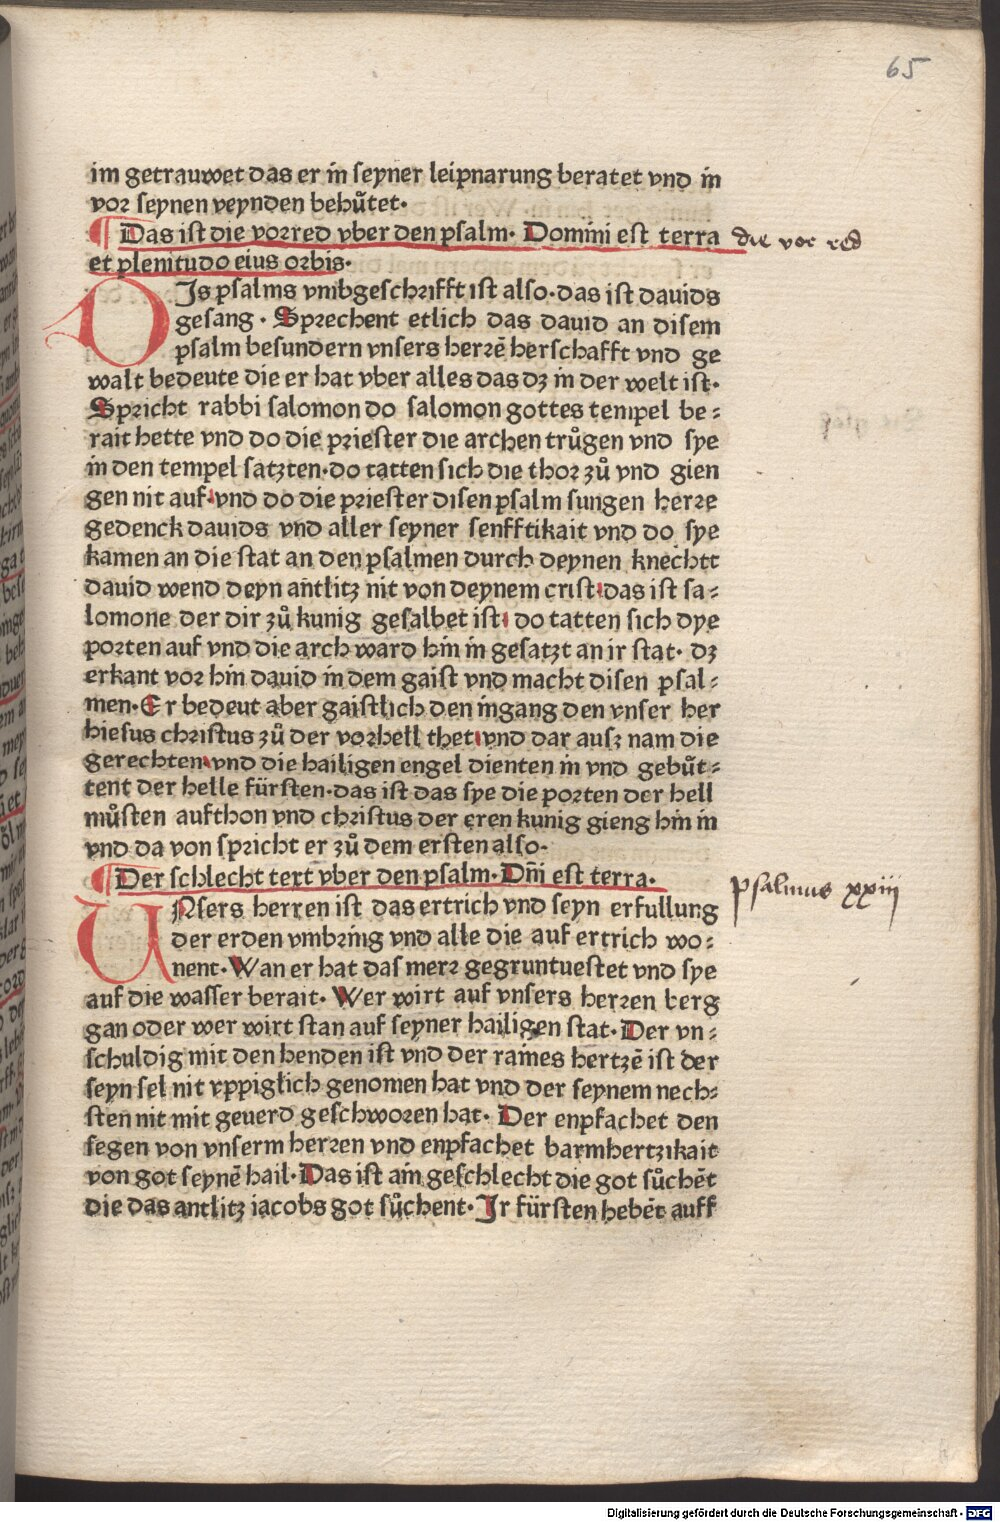 65
im getrauwet das er in seyner leipnarung beratet vnd in
vor seynen veynden behůtet·
¶ Das ist die vorred vber den psalm· Domini est terra
die vor red
et plenitudo eius orbis·
DIs psalms vmbgeschrifft ist also·das ist dauids
gesang· Sprechent etlich das dauid an disem
psalm besundern vnsers herrē herschafft vnd ge
walt bedeute die er hat vber alles das dz in der welt ist·
Spricht rabbi salomon do salomon gottes tempel be⸗
rait hette vnd do die priester die archen trůgen vnd sye
in den tempel satzten·do tatten sich die thor zů vnd gien
gen nit auf·vnd do die priester disen psalm sungen herre
gedenck dauids vnd aller seyner senfftikait vnd do sye
kamen an die stat an den psalmen durch deynen knechtt
dauid wend deyn antlitz nit von deynem crist·das ist sa⸗
lomone der dir zů kunig gesalbet ist· do tatten sich dye
porten auf vnd die arch ward hin in gesatzt an ir stat· dz
erkant vor hin dauid in dem gaist vnd macht disen psal⸗
men·Er bedeut aber gaistlich den ingang den vnser her
hiesus christus zů der vorhell thet·vnd dar ausz nam die
gerechten·vnd die hailigen engel dienten in vnd gebůt⸗
tent der helle fürsten·das ist das sye die porten der hell
můsten aufthon vnd christus der eren kunig gieng hin in
vnd da von spricht er zů dem ersten also·
¶ Der schlecht text vber den psalm·Dn̄i est terra·
psalmus xxiij
UNsers herren ist das ertrich vnd seyn erfullung
der erden vmbring vnd alle die auf ertrich wo⸗
nent·Wan er hat das merr gegruntuestet vnd sye
auf die wasser berait· Wer wirt auf vnsers herren berg
gan oder wer wirt stan auf seyner hailigen stat·Der vn⸗
schuldig mit den henden ist vnd der raines hertzē ist der
seyn sel nit vppiglich genomen hat vnd der seynem nech⸗
sten nit mit geuerd geschworen hat· Der enpfachet den
segen von vnserm herren vnd enpfachet barmhertzikait
von got seynē hail·Das ist ain geschlecht die got sůchēt
die das antlitz iacobs got sůchent·Ir fürsten hebēt auff
Digitalisierung gefördert durch die Deutsche Forschungsgemeinschaft - DFG